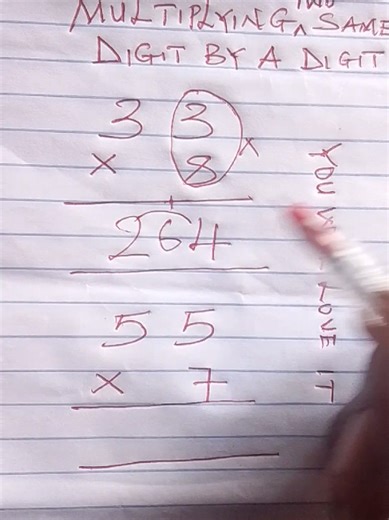 MULTIPLYING TWO SAME
DIGIT BY A DIGIT
3 3
× 8 ×
+
264
5 5
× 7
YOU LOVE IT